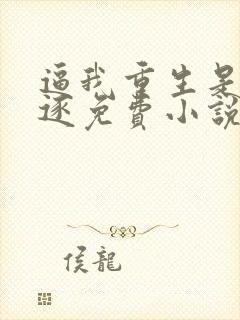 逼我重生是
逐免费小說
侯龍